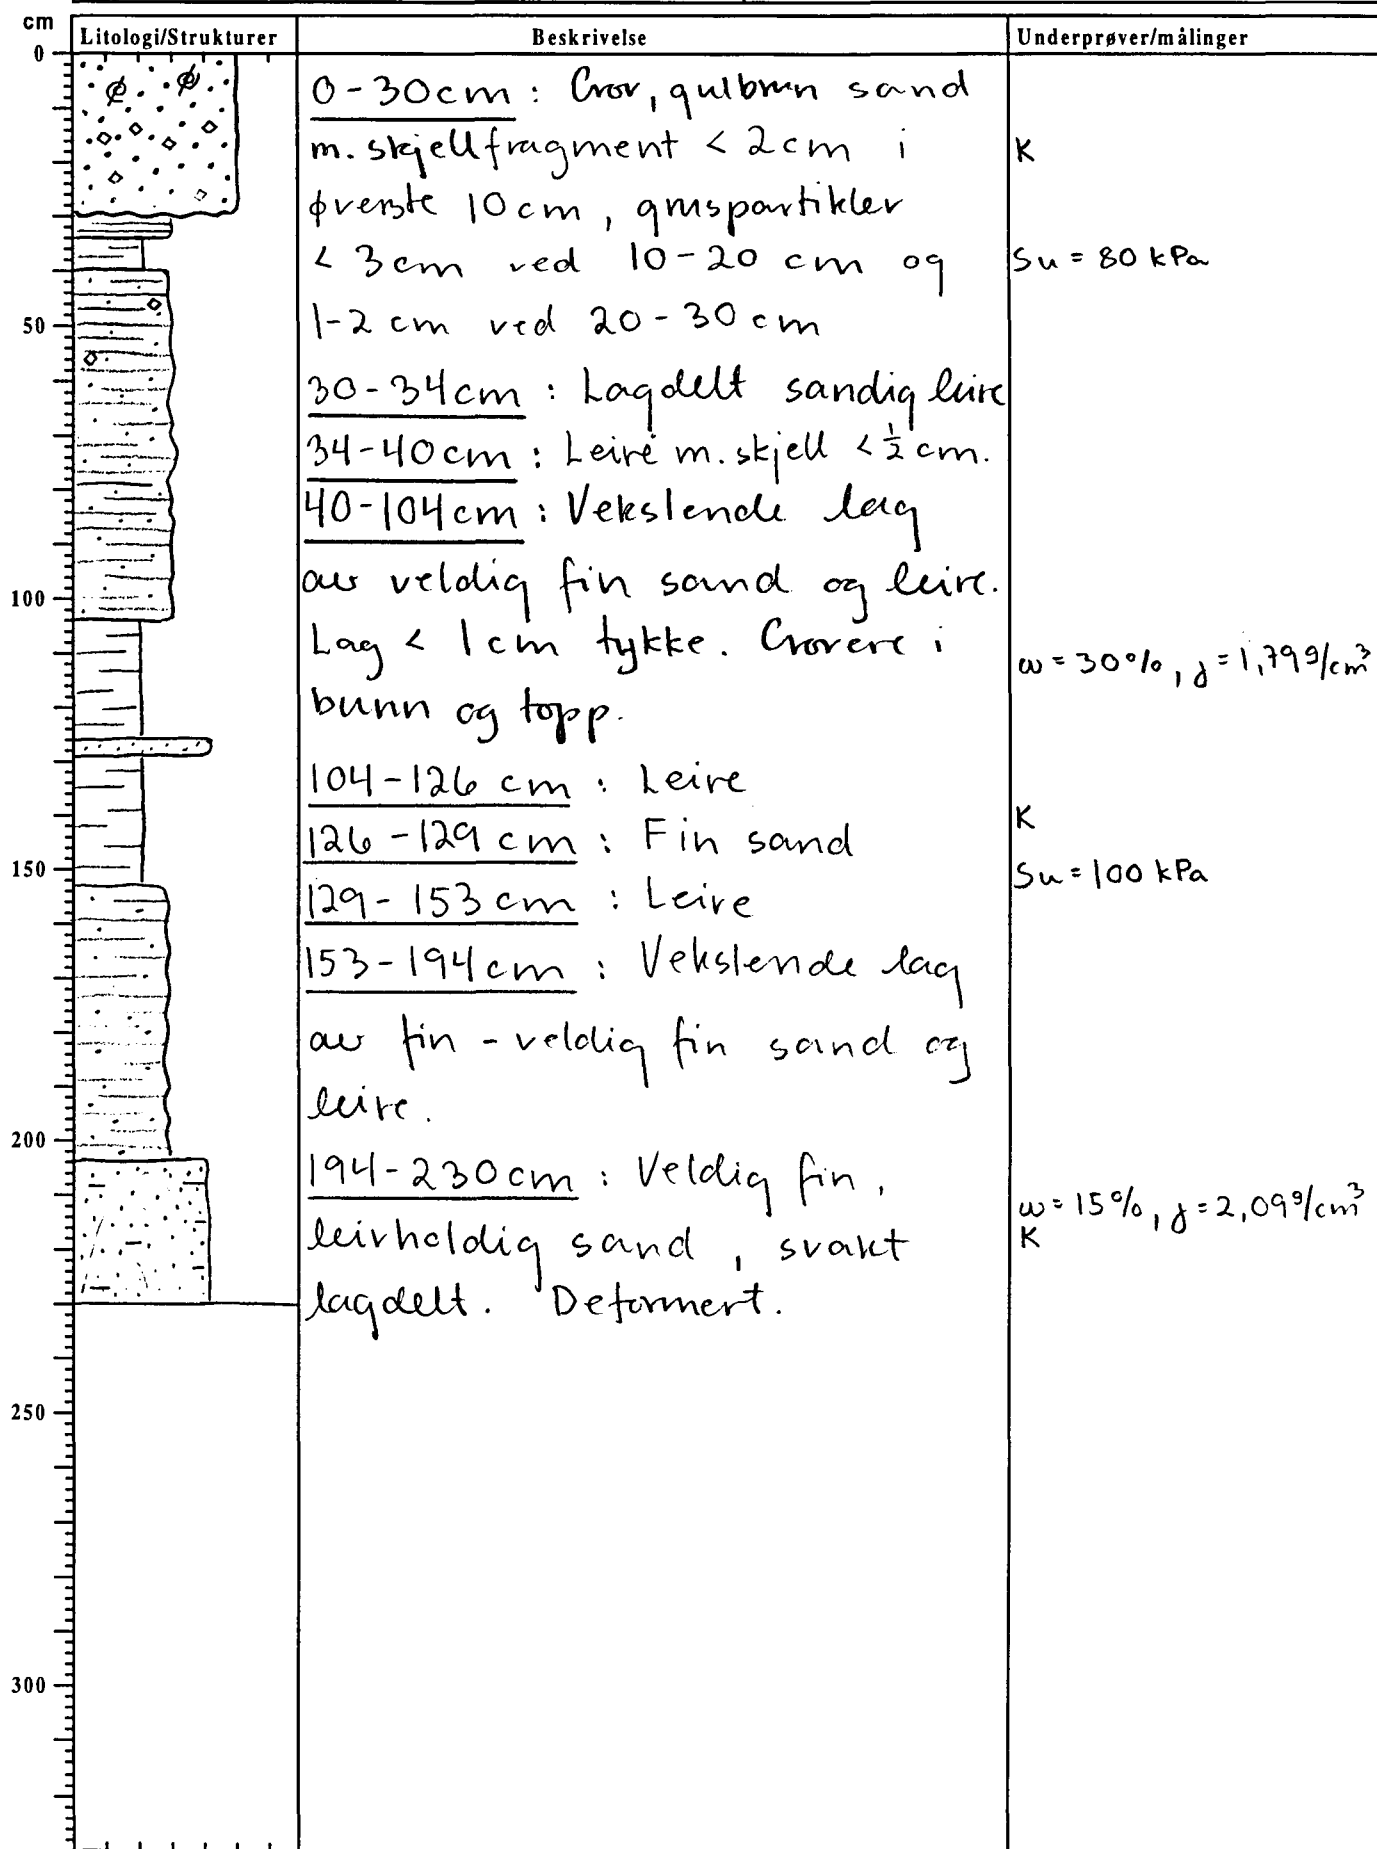 cm
Litologi/Strukturer
Beskrivelse
Underprøver/målinger
0
50
100
150
200
250
300
0-30cm : Grov, gulbrun sand
m. skjellfragment < 2cm i
øverste 10cm, gruspartikler
< 3cm ved 10-20 cm og
1-2 cm ved 20-30cm
30-34cm : Lagdelt sandig leire
34-40cm : Leire m. skjell < ½ cm.
40-104cm : Vekslende lag
av veldig fin sand og leire.
Lag < 1cm tykke. Grovere i
bunn og topp.
104-126 cm : Leire
126-129 cm : Fin sand
129-153 cm : Leire
153-194cm : Vekslende lag
av fin - veldig fin sand og
leire.
194-230cm : Veldig fin,
leirholdig sand, svakt
lagdelt. Deformert.
K
Su = 80 kPa
ω = 30%, γ = 1,79 g/cm³
K
Su = 100 kPa
ω = 15%, γ = 2,09 g/cm³
K